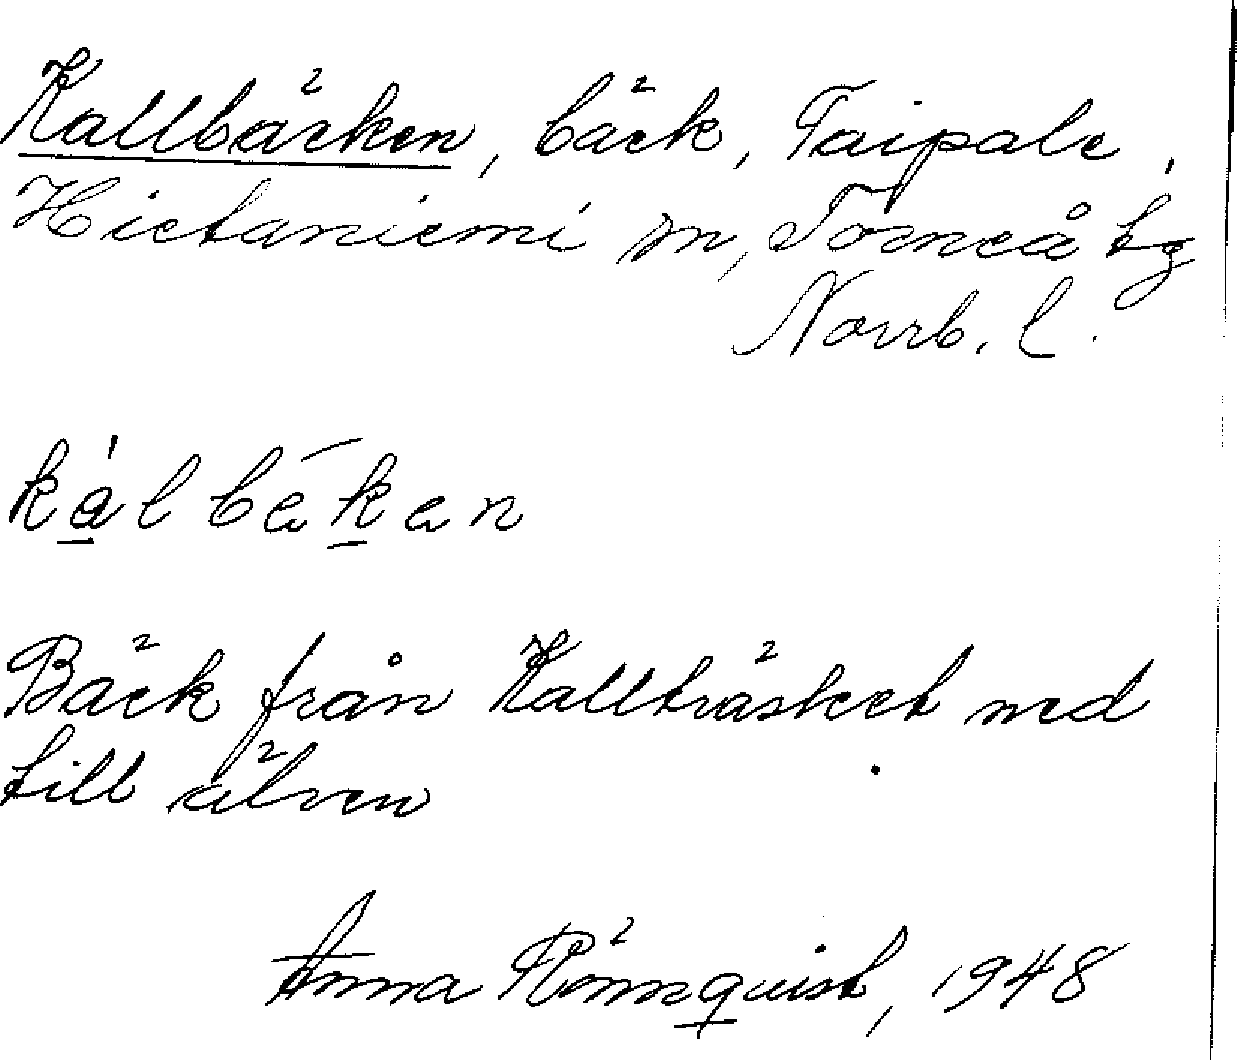 Kallbäcken, bäck, Taipale,
Hietaniemi sn, Torneå tg
Norrb. l.
kálbēken
Bäck från Kallträsket ned
till älven
Anna Rönnquist, 1948